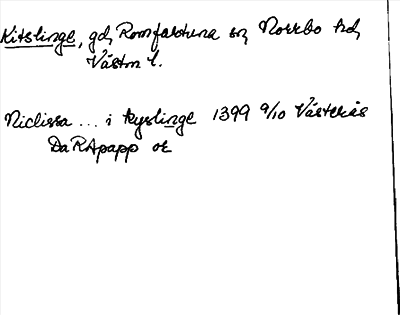 Kitslinge, gd, Romfartuna sn, Norrbo hd,
Västm l.
Niclissa ... i kyslinge 1399 9/10 Västerås
DaRApapp or